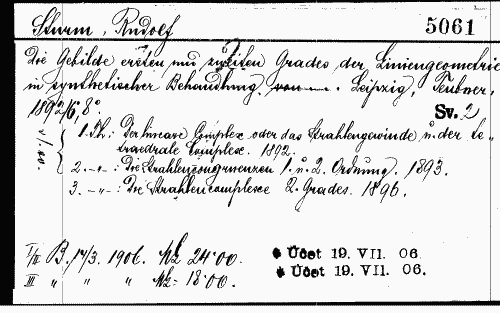 Sturm, Rudolf
5061
Die Gebilde ersten und zweiten Grades der Liniengeometrie
in synthetischer Behandlung. Leipzig, Teubner,
1892/6, 8°.
Sv. 2
1. Th.: Der lineare Complex oder das Strahlengewinde u. der te-
traedrale Complex. 1892.
2. -"- : Die Strahlencongruenzen 1. u. 2. Ordnung. 1893.
3. -"- : Die Strahlencomplexe 2. Grades. 1896.
I/II B. 14/3. 1906. Mk 24·00.
Účet 19. VII. 06
III " " " Mk 18·00.
Účet 19. VII. 06.